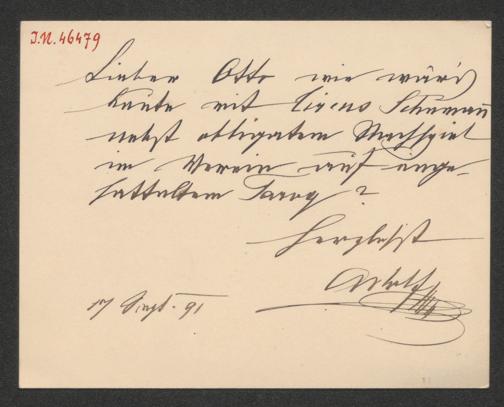 J.N. 46479
Lieber Otto wie wär's
heute mit Circus Schumann
nebst obligatem Nachspiel
im Verein auf einge-
satteltem Tarog?
Herzlichst
Adolf
17 Sept. 91